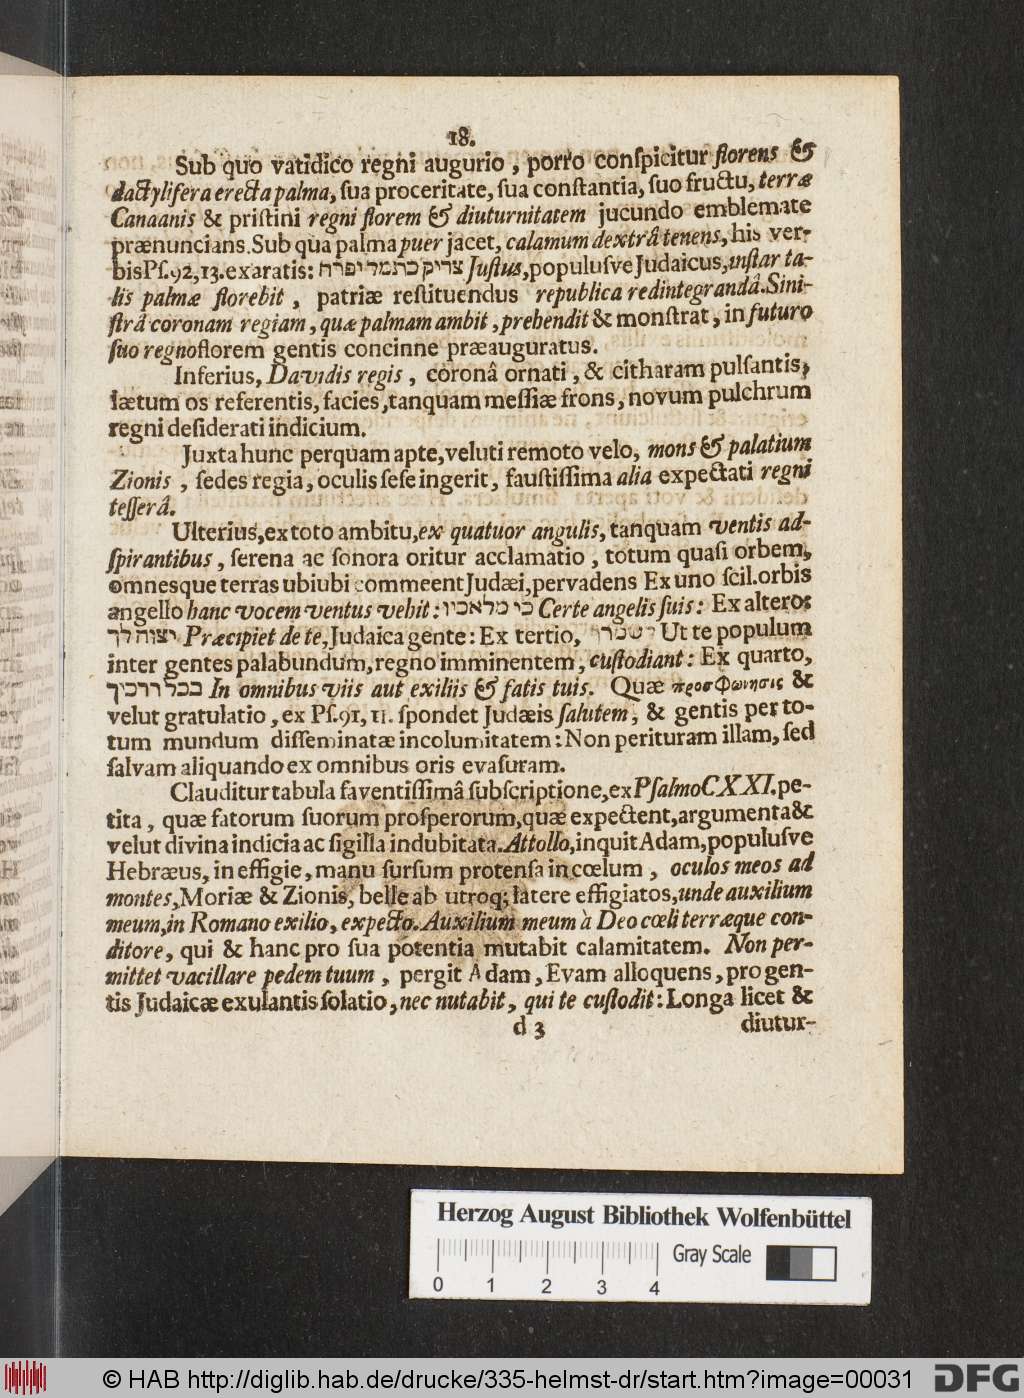 18.
Sub quo vatidico regni augurio, porro conſpicitur florens &
dactylifera erecta palma, ſua proceritate, ſua conſtantia, ſuo fructu, terræ
Canaanis & priſtini regni florem & diuturnitatem jucundo emblemate
prænuncians. Sub qua palma puer jacet, calamum dextrâ tenens, his ver-
bis Pſ. 92, 13. exaratis: צדיק כתמר יפרח Juſtus, populuſve Judaicus, inſtar ta-
lis palmæ florebit, patriæ reſtituendus republica redintegrandâ. Sini-
ſtrâ coronam regiam, quæ palmam ambit, prehendit & monſtrat, in futuro
ſuo regno florem gentis concinne præauguratus.
Inferius, Davidis regis, coronâ ornati, & citharam pulſantis,
lætum os referentis, facies, tanquam meſſiæ frons, novum pulchrum
regni deſiderati indicium.
Juxta hunc perquam apte, veluti remoto velo, mons & palatium
Zionis, ſedes regia, oculis ſeſe ingerit, fauſtiſſima alia expectati regni
teſſerâ.
Ulterius, ex toto ambitu, ex quatuor angulis, tanquam ventis ad-
ſpirantibus, ſerena ac ſonora oritur acclamatio, totum quaſi orbem,
omnesque terras ubiubi commeent Judæi, pervadens Ex uno ſcil. orbis
angello hanc vocem ventus vehit: כי מלאכיו Certe angelis ſuis: Ex altero:
יצוה לך Præcipiet de te, Judaica gente: Ex tertio, Ut te populum
inter gentes palabundum, regno imminentem, cuſtodiant: Ex quarto,
בכל דרכיך In omnibus viis aut exiliis & fatis tuis. Quæ προσφωνησις &
velut gratulatio, ex Pſ. 91, 11. ſpondet Judæis ſalutem, & gentis per to-
tum mundum diſſeminatæ incolumitatem: Non perituram illam, ſed
ſalvam aliquando ex omnibus oris evaſuram.
Clauditur tabula faventiſſimâ ſubſcriptione, ex Pſalmo CXXI. pe-
tita, quæ fatorum ſuorum proſperorum, quæ expectent, argumenta &
velut divina indicia ac ſigilla indubitata. Attollo, inquit Adam, populuſve
Hebræus, in effigie, manu ſurſum protenſa in cœlum, oculos meos ad
montes, Moriæ & Zionis, belle ab utroq; latere effigiatos, unde auxilium
meum, in Romano exilio, expecto. Auxilium meum à Deo cœli terræque con-
ditore, qui & hanc pro ſua potentia mutabit calamitatem. Non per-
mittet vacillare pedem tuum, pergit Adam, Evam alloquens, pro gen-
tis Judaicæ exulantis ſolatio, nec nutabit, qui te cuſtodit: Longa licet &
d 3 diutur-
Herzog August Bibliothek Wolfenbüttel
Gray Scale
0 1 2 3 4
© HAB http://diglib.hab.de/drucke/335-helmst-dr/start.htm?image=00031
DFG